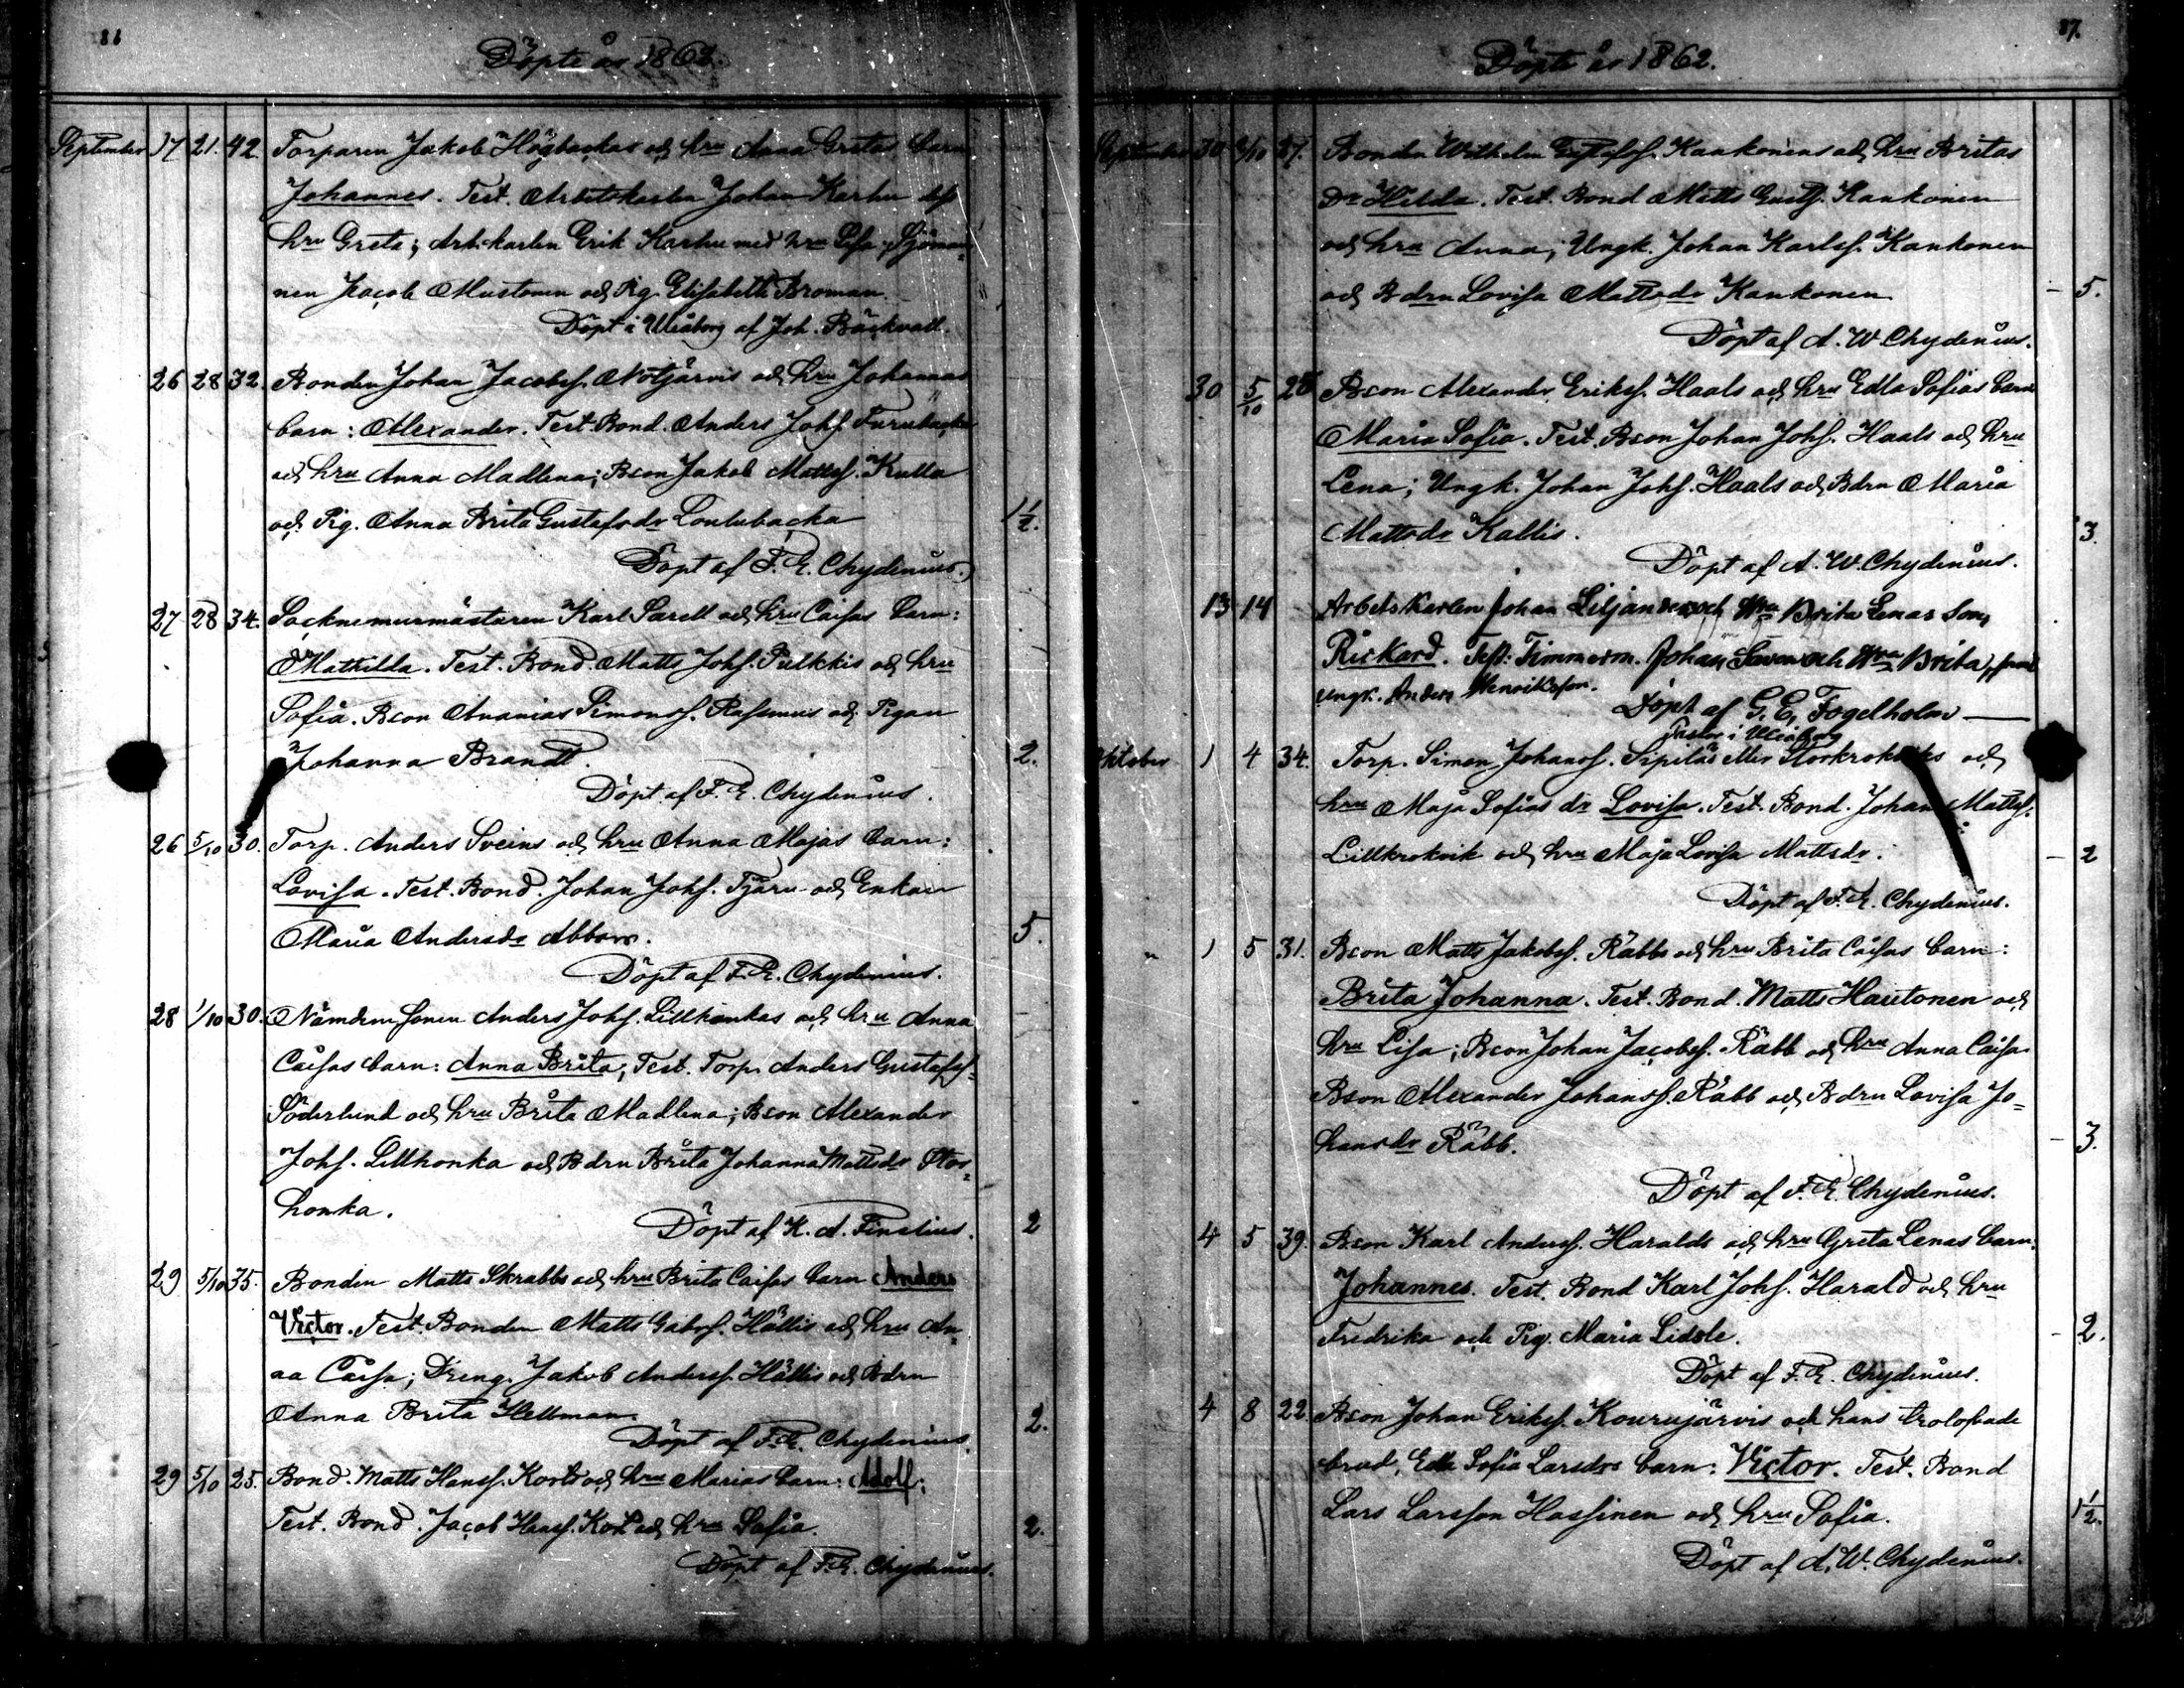 86
Döpte år 1862.
September 17 21. 42. Torparen Jakob Högbackas och hru Anna Gretas barn
Johannes. Test. Arbetskarlen Johan Karhu dess
hru Greta; Arb. karlen Erik Karhu med hru Lisa; Sjöman-
nen Jacob Mustonen och Pig. Elisabeth Broman.
Döpt i Uleåborg af Joh. Bäckvall.
26 28 32. Bonden Johan Jacobss. Nötjärvis och hru Johannas
barn: Alexander. Test. Bond. Anders Johss. Furubacka
och hru Anna Madlena; Bson Jakob Mattss. Kulla
och Pig. Anna Brita Gustafsdr Loulubacka 1½.
Döpt af F. E. Chydenius.
27 28 34. Socknemurmästaren Karl Sarell och hru Caisas barn:
Mathilda. Test. Bond. Matts Johss. Pulkkis och hru
Sofia. Bson Ananias Simonss. Rasmus och Pigan
Johanna Brandt. 2.
Döpt af F. E. Chydenius.
26 5/10 30. Torp. Anders Sveins och hru Anna Majas barn:
Lovisa. Test. Bond. Johan Johss. Tjäru och Enkan
Maria Andersdr Abbors. 5.
Döpt af F. E. Chydenius.
28 1/10 30. Nämdemsonen Anders Johss. Lillhonkas och hru Anna
Caisas barn: Anna Brita; Test. Torp. Anders Gustafss.
Söderlund och hru Brita Madlena; Bson Alexander
Johss. Lillhonka och Bdrn Brita Johanna Mattsdr Stor-
honka.
Döpt af K. A. Finelius. 2
29 5/10 35. Bonden Matts Skrabbs och hru Brita Caisas barn Anders
Victor. Test. Bonden Matts Gabrs. Hällis och hru An-
na Caisa; Dreng. Jakob Anderss. Hällis och Bdrn
Anna Brita Hellman. 2.
Döpt af F. E. Chydenius.
29 5/10 25. Bond. Matts Hanss. Korts och hru Marias barn: Adolf;
Test. Bond. Jacob Hanss. Kort och hru Sofia. 2.
Döpt af F. E. Chydenius.
87.
Döpte år 1862.
September 30 2/10 37. Bonden Wilhelm Gustafss. Kankonens och hru Britas
Dr Hilda. Test. Bond Matts Gustss. Kankonen
och hru Anna; Ungk. Johan Karlss. Kankonen
och Bdrn Lovisa Mattsdr Kankonen - 5.
Döpt af A. W. Chydenius.
30 5/10 28 Bson Alexander Erikss. Haals och hru Edla Sofias barn
Maria Sofia. Test. Bson Johan Johss. Haals och hru
Lena; Ungk. Johan Johss. Haals och Bdrn Maria
Mattsdr Kallis. 3.
Döpt af A. W. Chydenius.
13 14 Arbetskarlen Johan Liljander och Hru Brita Lenas son,
Rickard. Test: Timmerm. Johan Saven och Hru Brita, samt
ungk. Anders Henriksson.
Döpt af G. E. Fogelholm
Pastor i Uleåborg
Oktober 1 4 34. Torp. Simon Johanss. Sipiläs eller Storkrokviks och
hru Maja Sofias dr Lovisa. Test. Bond. Johan Mattss.
Lillkrokvik och hru Maja Lovisa Mattsdr. - 2
Döpt af F. E. Chydenius.
" 1 5 31. Bson Matts Jakobss. Räbbs och hru Brita Caisas barn:
Brita Johanna. Test. Bond. Matts Hautonen och
hru Lisa; Bson Johan Jacobss. Räbb och hru Anna Caisa
Bson Alexander Johanss. Räbb och Bdrn Lovisa Jo-
hansdr Räbb. - 3.
Döpt af F. E. Chydenius.
4 5 39. Bson Karl Anderss. Haralds och hru Greta Lenas barn:
Johannes. Test. Bond Karl Johss. Harald och hru
Fredrika och Pig. Maria Lidsle. - 2.
Döpt af F. E. Chydenius.
4 8 22. Bson Johan Erikss. Kourujärvis och hans trolofvade
brud, Edla Sofia Larsdrs barn: Victor. Test. Bond
Lars Larsson Hassinen och hru Sofia. 1½.
Döpt af A. W. Chydenius.